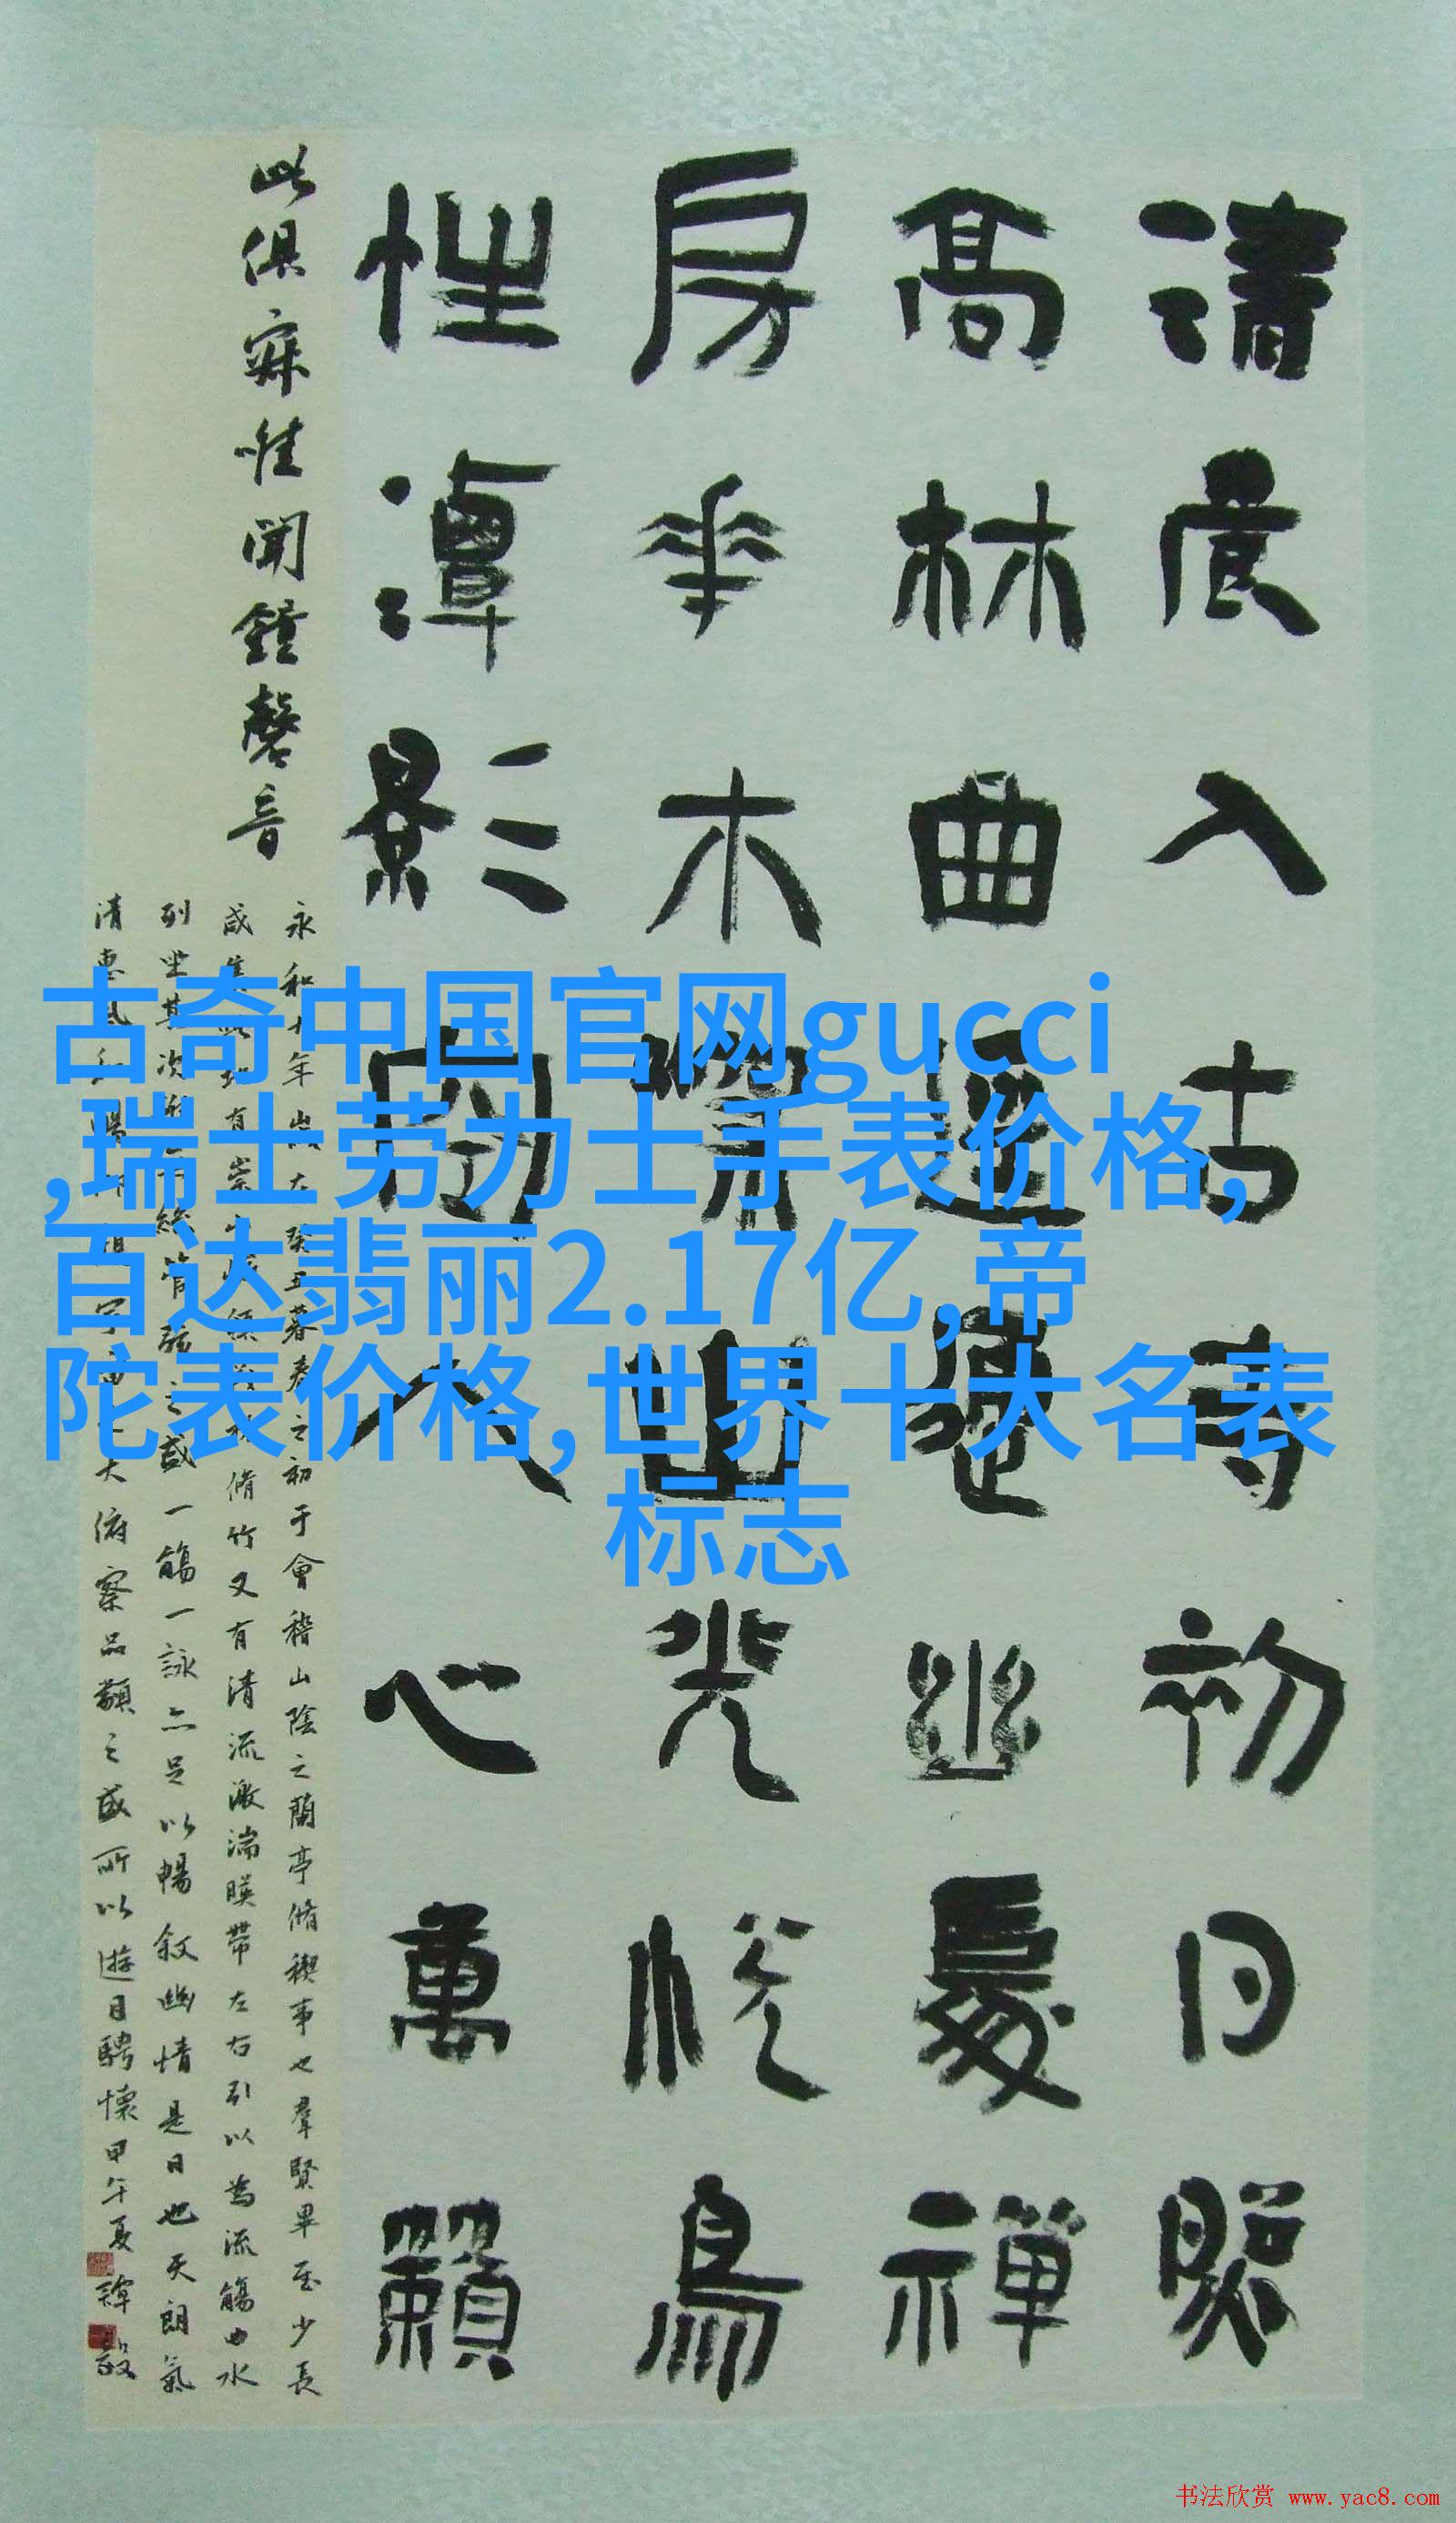 清晨入古寺初日照
高林曲逕通幽處禪
房花木深山光悅鳥
性潭影空人心萬籟
此俱寂惟聞鐘磬音
永和九年歲在癸丑暮春之初于會稽山陰之蘭亭脩稧事也羣賢畢至少長
咸集此地有崇山峻領茂林脩竹又有清流激湍暎帶左右引以為流觴曲水
列坐其次雖無絲竹管弦之盛一觴一詠亦足以暢敘幽情是日也天朗氣
清惠風和暢仰觀宇宙之大俯察品類之盛所以遊目騁懷甲午夏
古奇中国官网gucci
,瑞士劳力士手表价格,
百达翡丽2.17亿,帝
陀表价格,世界十大名表
标志
书法欣赏 www.yac8.com